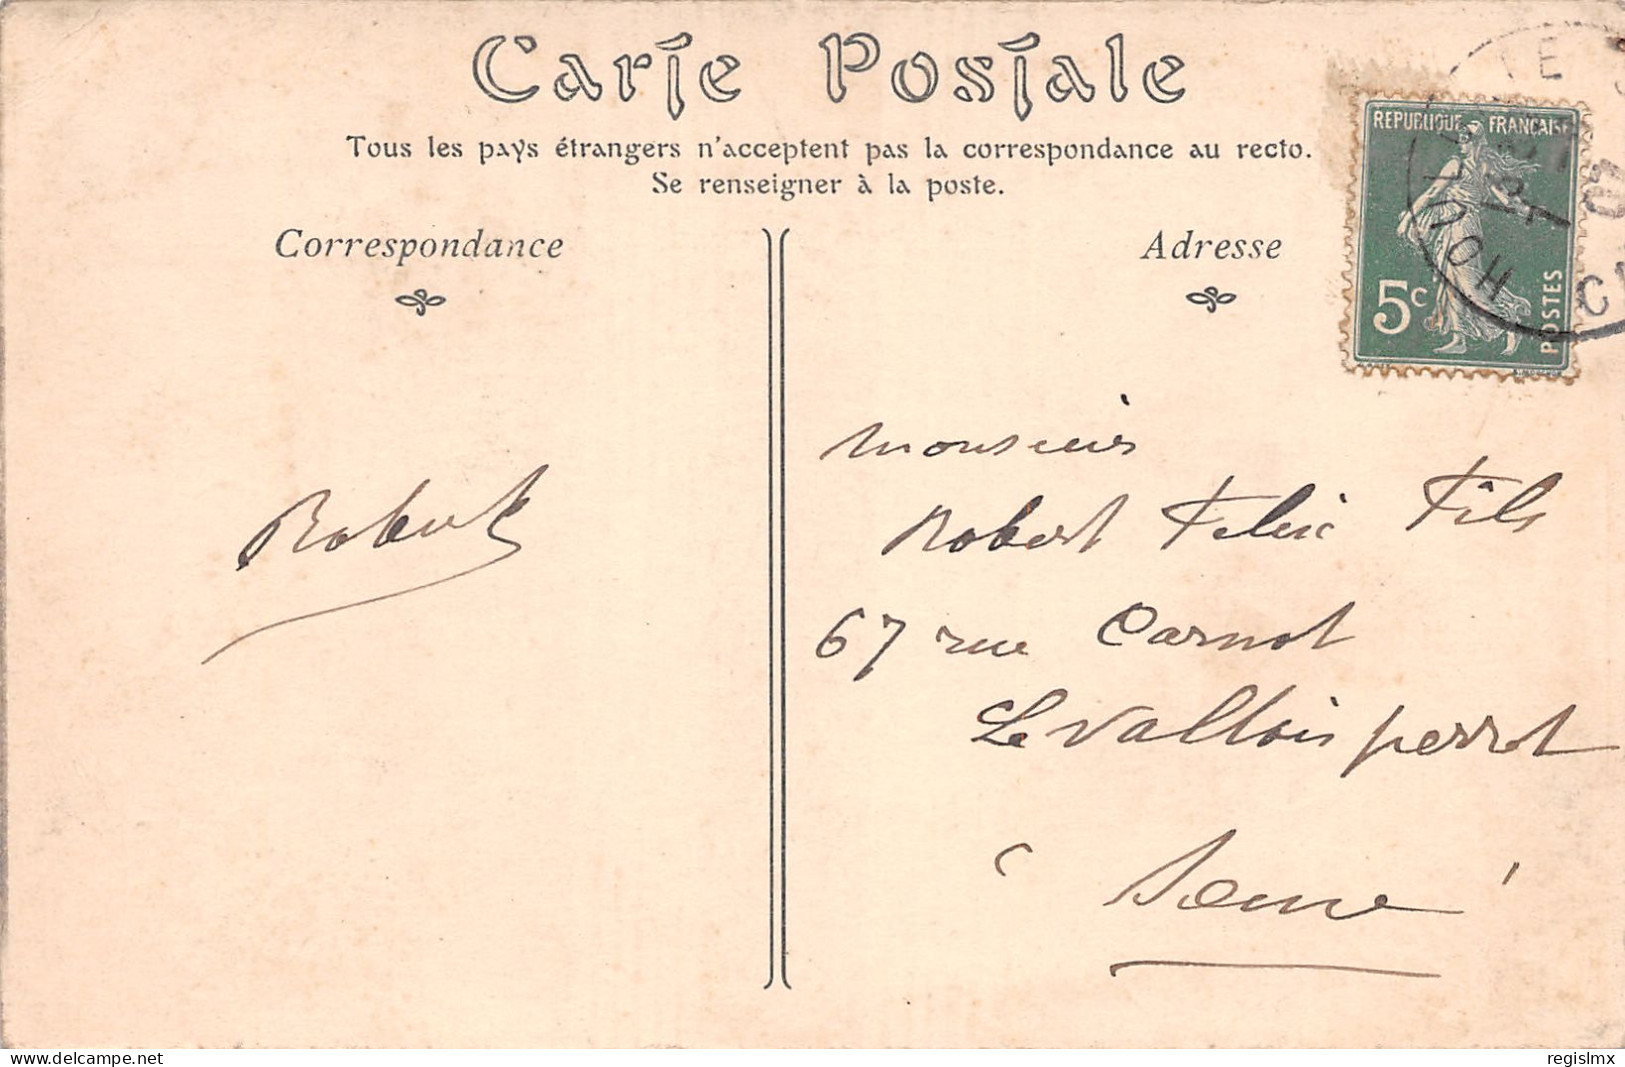 Carte Postale
Tous les pays étrangers n'acceptent pas la correspondance au recto.
Se renseigner à la poste.
Correspondance
Adresse
REPUBLIQUE FRANÇAISE
5c
POSTES
HOULGATE
Robert
Monsieur
Robert Felix Fils
67 rue Carnot
Levallois perret
(Seine)
delcampe.net
regislmx